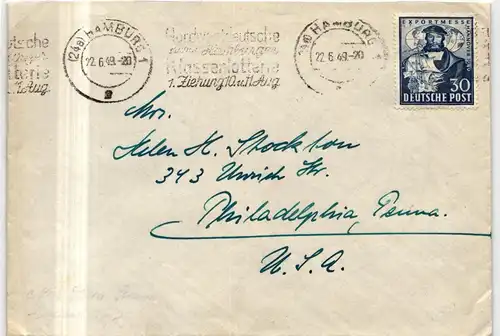 (24a) HAMBURG 1
22.6.49.-20
a
Nordwestdeutsche
Hamburger
Klassenlotterie
1. Ziehung 10. u. 11. Aug
HAMBURG
22.6.49.-20
EXPORTMESSE
HANNOVER
30
DEUTSCHE POST
Mrs.
Helen H. Stockton
343 Unrich Str.
Philadelphia, Penna.
U. S. A.